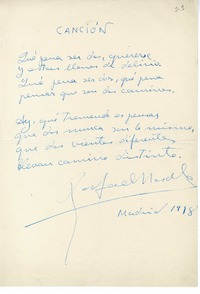 CANCIÓN
Qué pena ser dos, quererse
y estar llenos de delirio
Qué pena ser dos, qué pena
pensar que son dos caminos.
Ay, qué tremendo es pensar
que dos nunca son lo mismo,
que dos vientos diferentes
llevan camino distinto.
Rafael
Madrid 1978